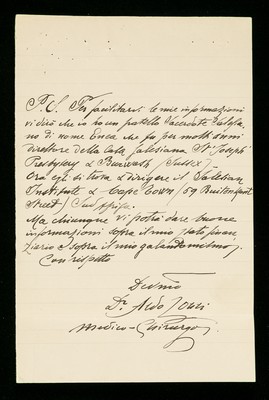 P. S. Per facilitarvi le mie informazioni
vi dirò che io ho un fratello Sacerdote Salesia-
no di nome Enea che fu per molti anni
direttore della Casa Salesiana St Joseph
Presbytery & Burwash (Sussex).
Ora egli si trova a dirigere il Salesian
Institute & Cape Town / 59 Buitenkant
Street / Sud Africa.
Ma chiunque vi potrà dare buone
informazioni sopra il mio stato finan-
ziario e sopra il mio galantomismo,
Con rispetto
Devmo
Dr. Aldo
Medico-Chirurgo